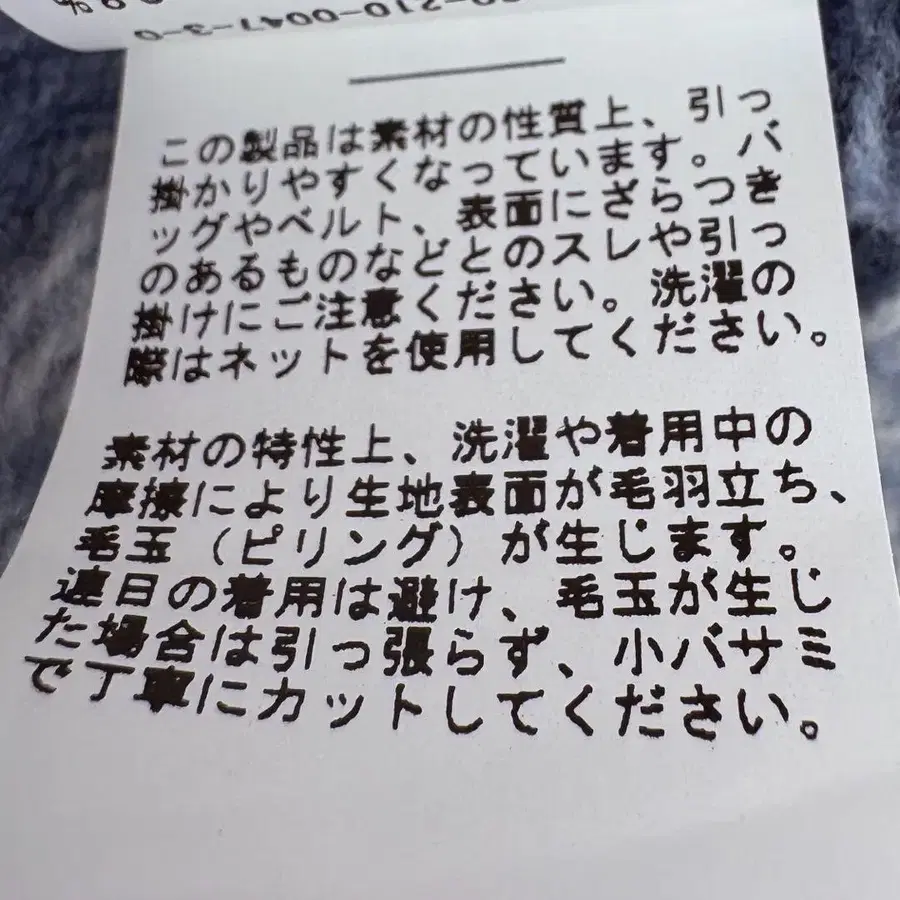 -210-0047-3-0
この製品は素材の性質上、引っ
掛かりやすくなっています。バ
ッグやベルト、表面にざらつき
のあるものなどとのスレや引っ
掛けにご注意ください。洗濯の
際はネットを使用してください。
素材の特性上、洗濯や着用中の
摩擦により生地表面が毛羽立ち、
毛玉（ピリング）が生じます。
連日の着用は避け、毛玉が生じ
た場合は引っ張らず、小バサミ
で丁寧にカットしてください。